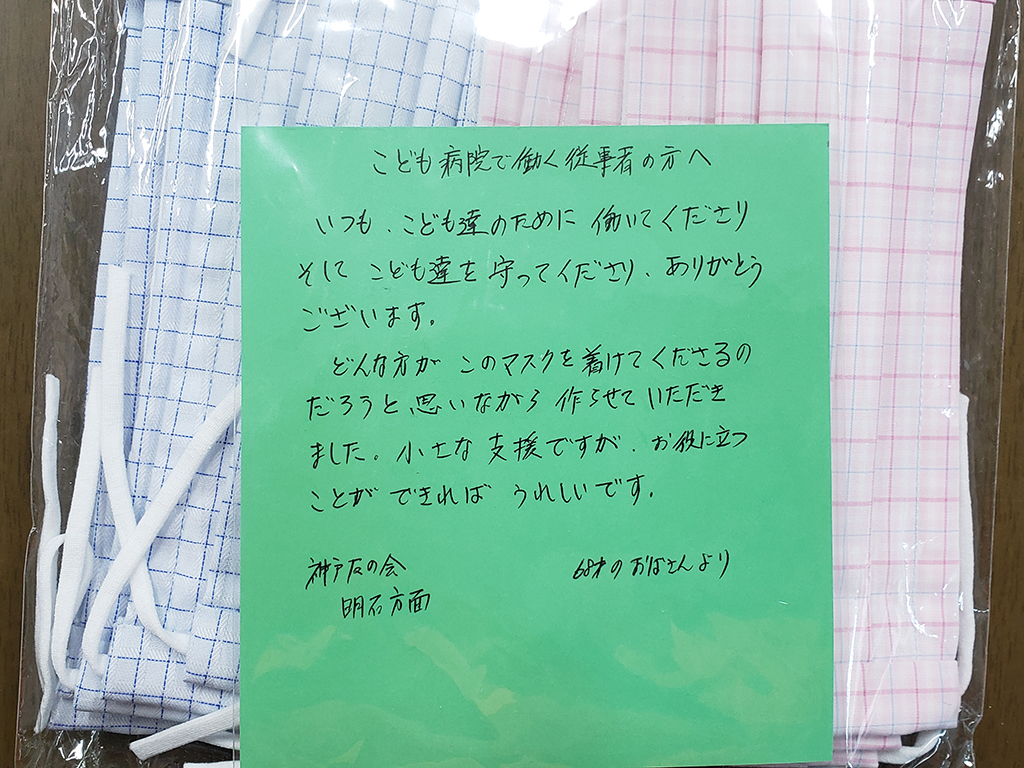 こども病院で働く従事者の方へ
いつも、こども達のために働いてくださり
そして こども達を守ってくださり、ありがとう
ございます。
どんな方が このマスクを着けてくださるの
だろうと、思いながら 作らせていただき
ました。小さな支援ですが、お役に立つ
ことが できれば うれしいです。
神戸友の会 68才のおばさんより
明石方面